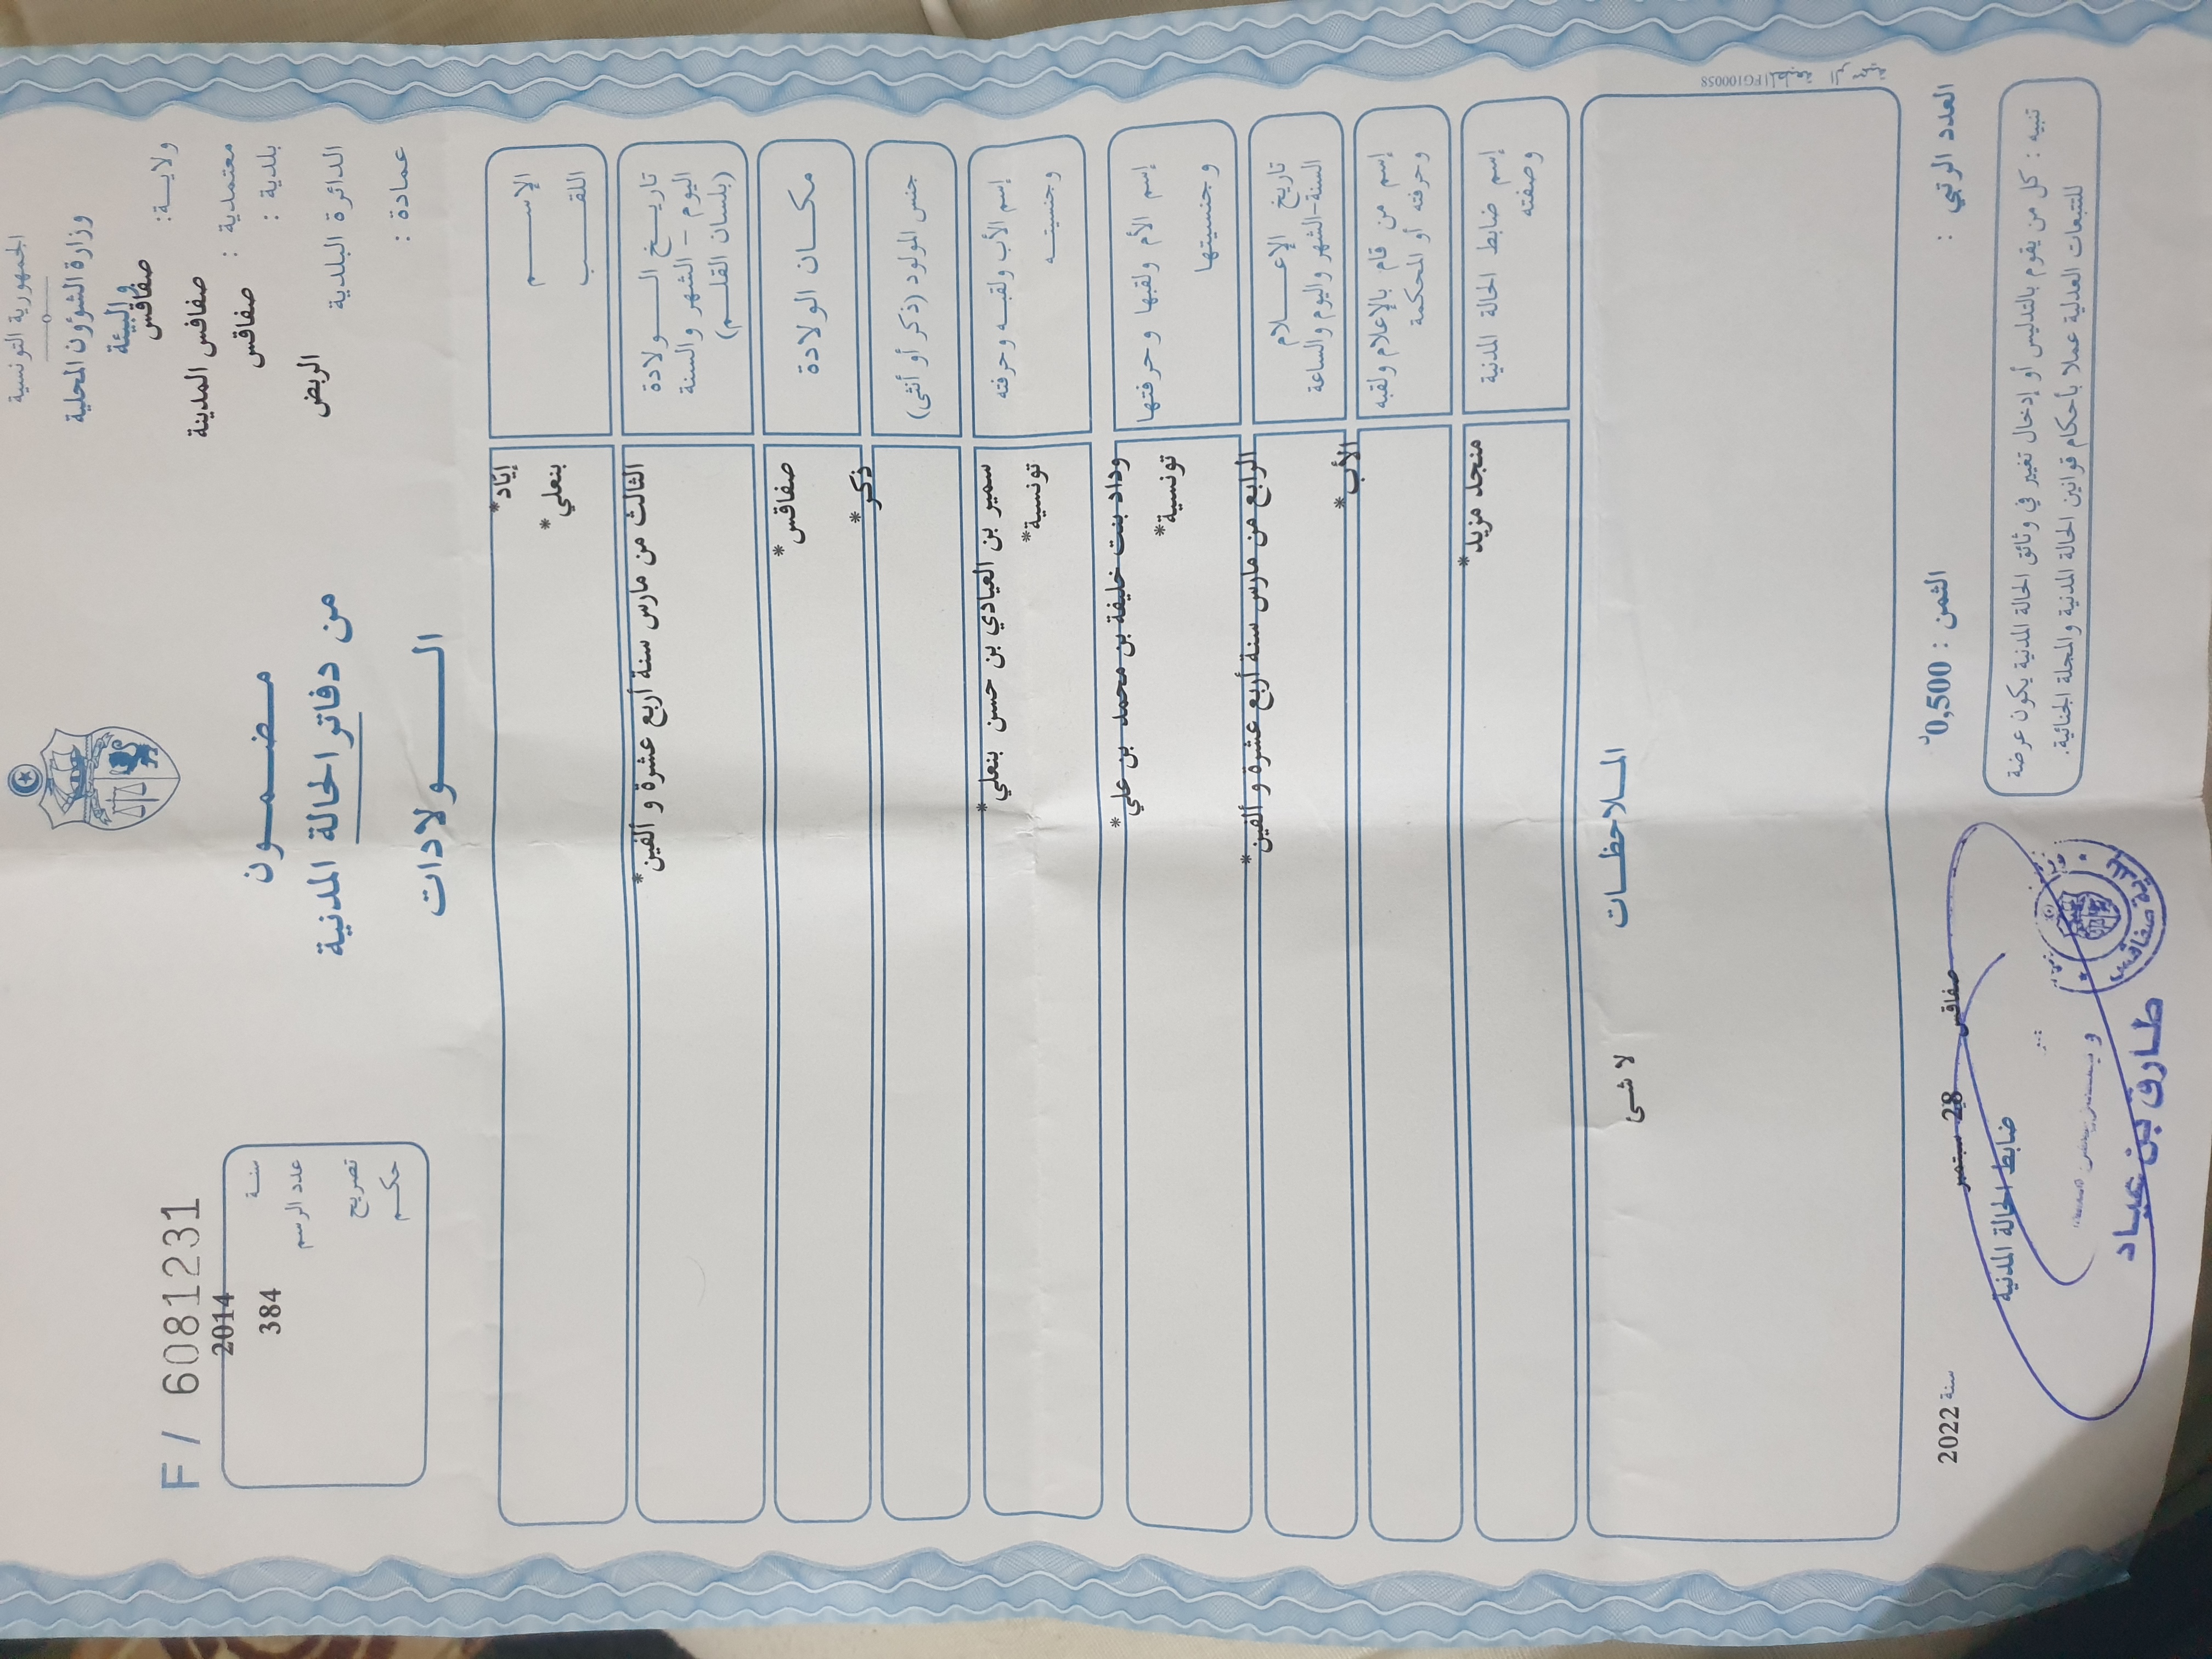 الجمهورية التونسية
وزارة الشؤون المحلية
والبيئة
ولايــة: صفاقس
معتمدية : صفاقس المدينة
بلدية : صفاقس
الدائرة البلدية الربض
عمادة :
مـضـمـون
من دفاتر الحالة المدنية
الـولادات
F / 60812231
سنـة 2014
عدد الرسم 384
تصريح
حكـم
الإســـم إيّاد*
اللقـــب بنعلي*
تاريــخ الـــولادة الثالث من مارس سنة أربع عشرة و ألفين*
اليوم - الشهر والسنة
(بلسان القلــم)
مكــان الولادة صفاقس*
جنس المولود (ذكر أو أنثى) ذكر*
إسم الأب ولقبـه وحرفته سمير بن العيادي بن حسن بنعلي*
وجنسيتــه تونسية*
إسم الأم ولقبها وحرفتها وداد بنت خليفة بن محمد بن علي*
وجنسيتها تونسية*
تاريخ الإعـــلام الرابع من مارس سنة أربع عشرة و ألفين*
السنة-الشهر واليوم والساعة
إسم من قام بالإعلام ولقبه الأب*
وحرفته أو المحكمة
إسم ضابط الحالة المدنية منجد مزيد*
وصفته
المـلاحظـات
لا شئ
FG100058
العدد الرتبي :
الثمن : 0,500د
صفاقس 28 سبتمبر سنة 2022
ضابط الحالة المدنية
تنبيه : كل من يقوم بالتدليس أو إدخال تغيير في وثائق الحالة المدنية يكون عرضة
للتتبعات العدلية عملا بأحكام قوانين الحالة المدنية والمجلة الجنائية.
بلدية صفاقس
طارق بن عياد